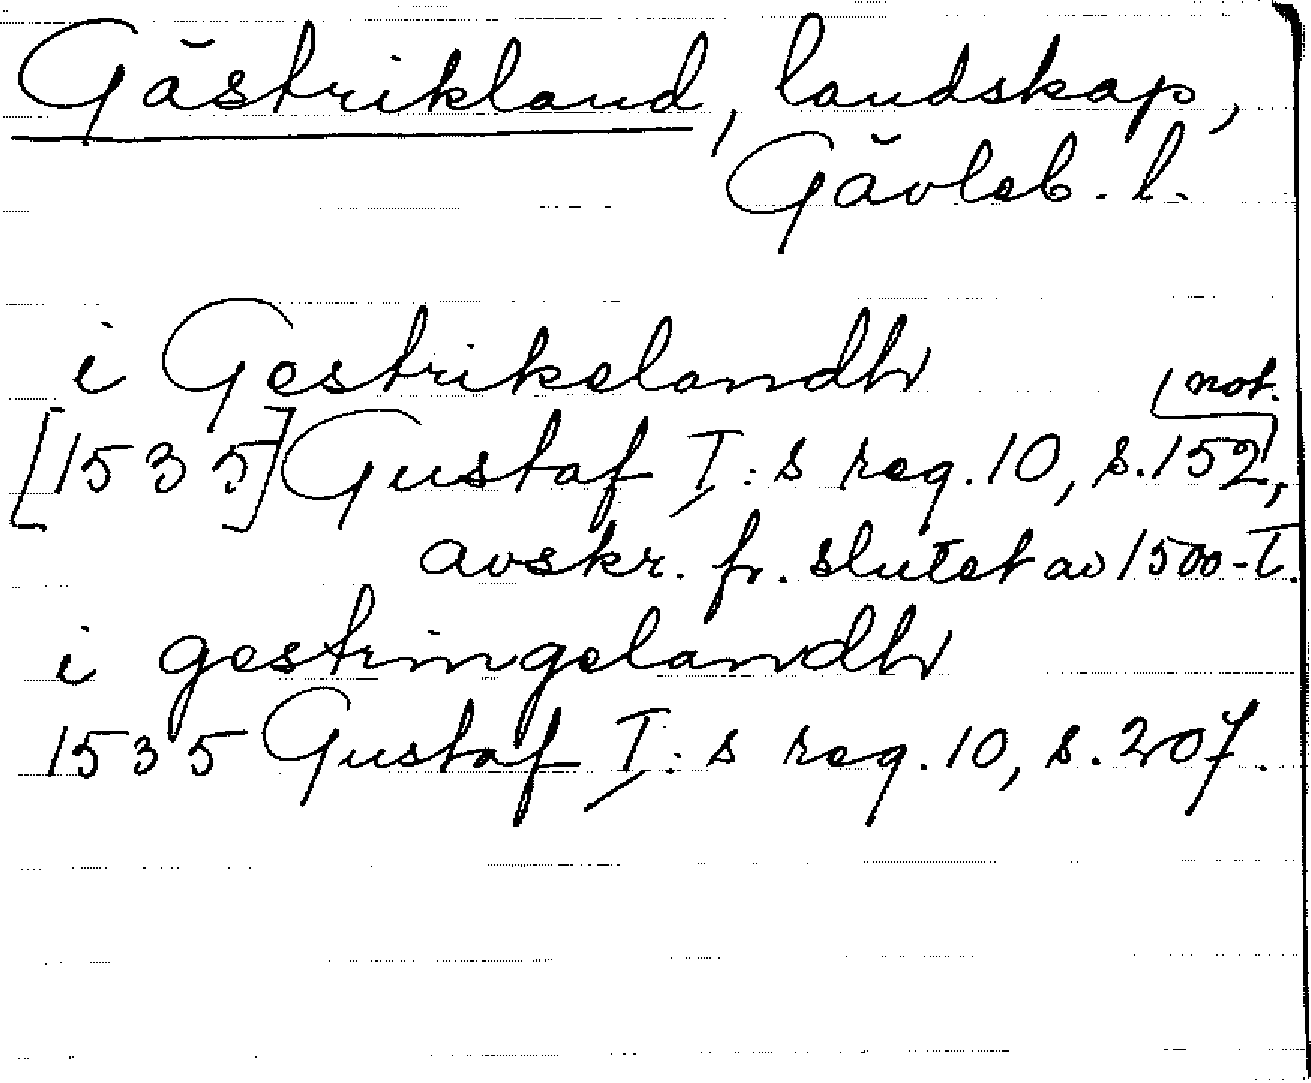 Gästrikland, landskap,
Gävleb. l.
i Gestrikelandh
[1535] Gustaf I:s reg. 10, s. 152, not.
avskr. fr. slutet av 1500-t.
i gestringelandh
1535 Gustaf I:s reg. 10, s. 207.